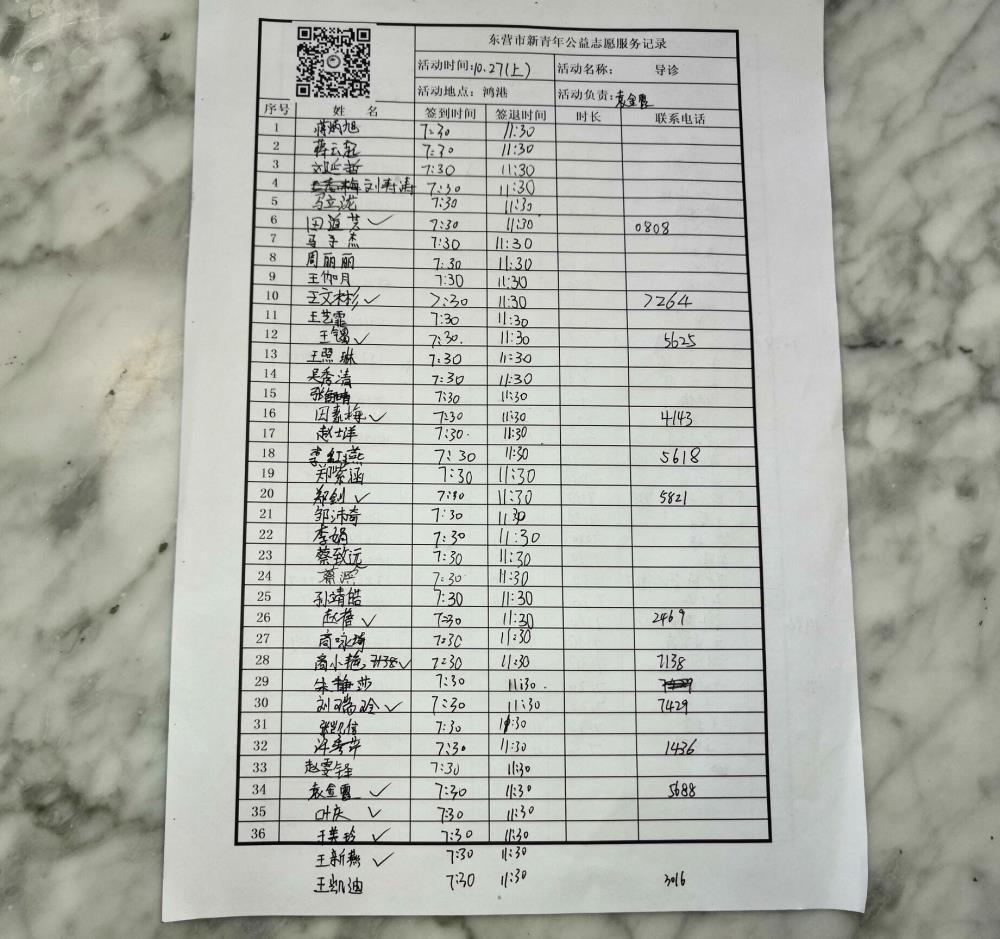 东营市新青年公益志愿服务记录
活动时间:10.27(上) 活动名称: 导诊
活动地点: 鸿港 活动负责: 袁金霞
序号 姓 名 签到时间 签退时间 时长 联系电话
1 蒋炳旭 7:30 11:30
2 蒋云起 7:30 11:30
3 7:30 11:30
4 刘寿涛 7:30 11:30
5 马立泷 7:30 11:30
6 田道芝 ✓ 7:30 11:30 0808
7 马子杰 7:30 11:30
8 周丽丽 7:30 11:30
9 王伽月 7:30 11:30
10 王文彬 ✓ 7:30 11:30 7264
11 王艺霏 7:30 11:30
12 王镭 ✓ 7:30 11:30 5625
13 王照琳 7:30 11:30
14 吴秀清 7:30 11:30
15 7:30 11:30
16 田素梅 ✓ 7:30 11:30 4143
17 赵士洋 7:30 11:30
18 李红燕 7:30 11:30 5618
19 郑紫涵 7:30 11:30
20 郑钊 ✓ 7:30 11:30 5821
21 邹沛奇 7:30 11:30
22 李娟 7:30 11:30
23 蔡致远 7:30 11:30
24 7:30 11:30
25 孙靖皓 7:30 11:30
26 赵楷 ✓ 7:30 11:30 2469
27 商咏琦 7:30 11:30
28 商小艳 7138 ✓ 7:30 11:30 7138
29 朱静莎 7:30 11:30
30 刘瑞玲 ✓ 7:30 11:30 7429
31 张凯信 7:30 11:30
32 7:30 11:30 1436
33 赵雯铎 7:30 11:30
34 袁金霞 ✓ 7:30 11:30 5688
35 叶庆 ✓ 7:30 11:30
36 于美珍 ✓ 7:30 11:30
王新燕 ✓ 7:30 11:30
王凯迪 7:30 11:30 3016